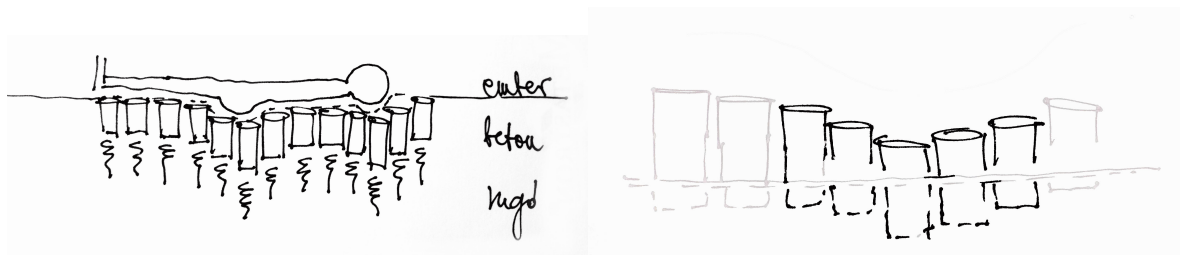 ember
beton
rugó